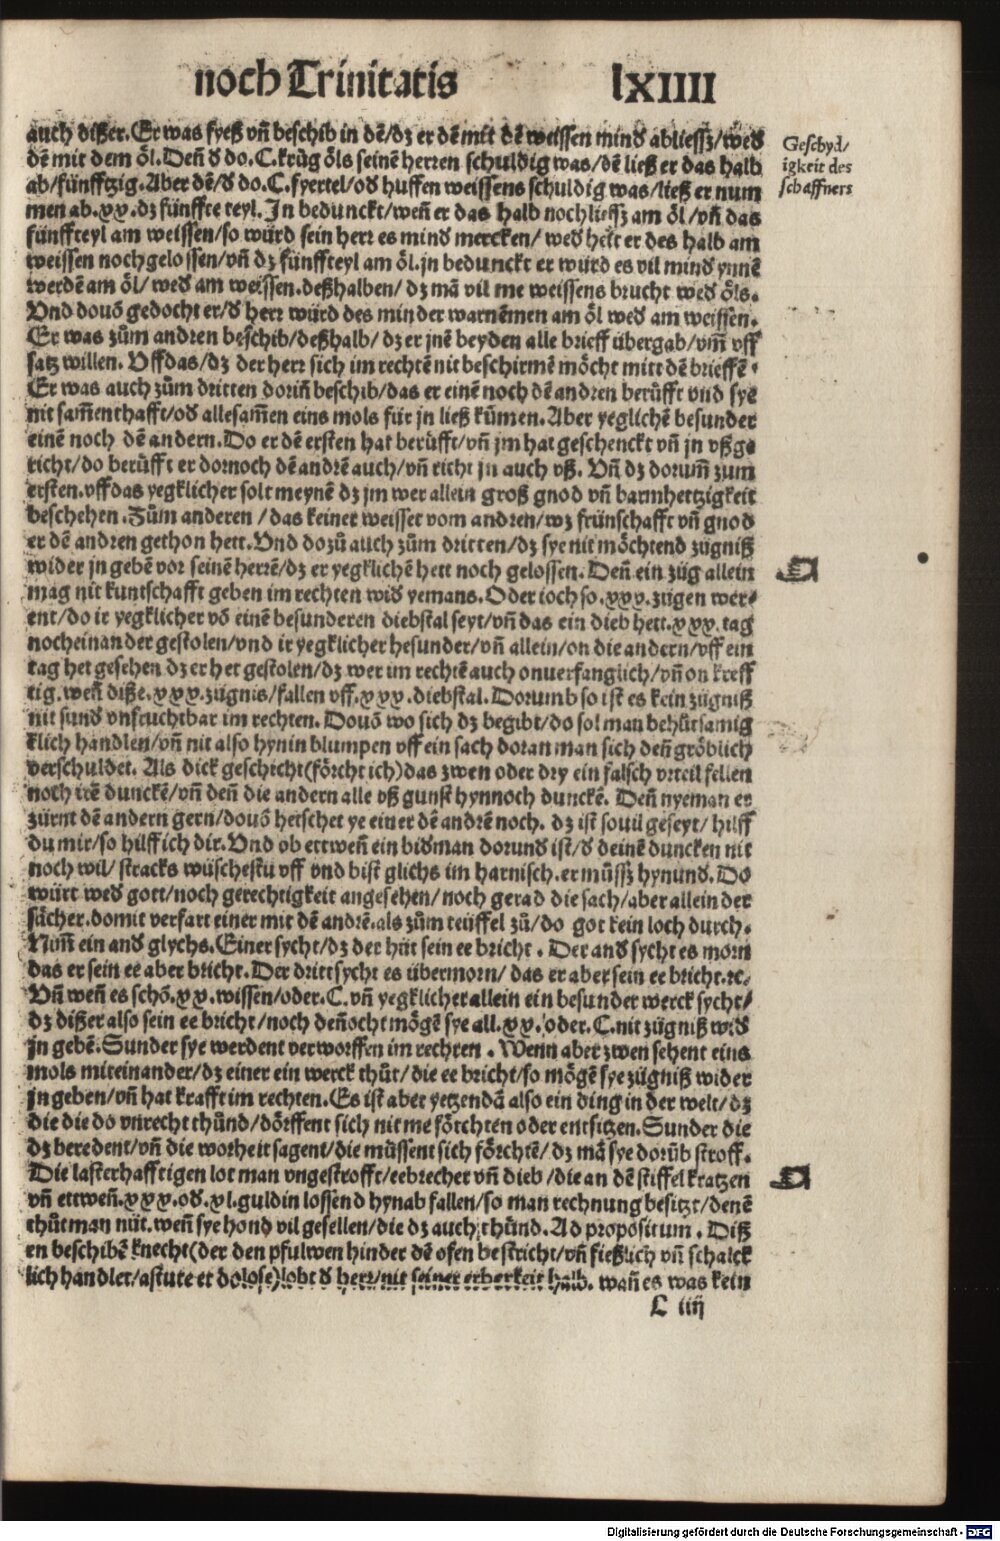 noch Trinitatis lxiiii
auch dißer. Er was fyeß vñ beschib in dē/dz er dē mit dē weissen mind abliessz/wed
dē mit dem öl. Deñ d do. C. krůg öls seinē herren schuldig was/dē ließ er das halb
ab/fünfftzig. Aber dē/d do. C. fyertel/od huffen weissens schuldig was/ließ er num
men ab. xx. dz fünffte teyl. Jn bedunckt/weñ er das halb nochliessz am öl/vñ das
fünffteyl am weissen/so würd sein herr es mind mercken/ wed hett er des halb am
weissen nochgelossen/vñ dz fünffteyl am öl. jn bedunckt er würd es vil mind ynnē
werdē am öl/ wed am weissen. deßhalben/ dz mā vil me weissens brucht wed öls.
Vnd douō gedocht er/d herr würd des minder warnēmen am öl wed am weissen.
Er was zům andren beschib/deßhalb/ dz er jnē beyden alle brieff übergab/vm̃ vff
satz willen. Vffdas/dz der herr sich im rechtē nit beschirmē möcht mitt dē brieffē.
Er was auch zům dritten doriñ beschib/das er einē noch dē andren berüfft vnd sye
nit sam̃enthafft/od allesam̃en eins mols für jn ließ kům̃en. Aber yeglichē besunder
einē noch dē andern. Do er dē ersten hat berüfft/vñ jm hat geschenckt vñ jn vßge
richt/do berüfft er dornoch dē andrē auch/vñ richt jn auch vß. Vñ dz dorum̃ zum
ersten. vffdas yegklicher solt meynē dz jm wer allein groß gnod vñ barmhertzigkeit
beschehen. Zům anderen / das keiner weisset vom andren/wz frünschafft vñ gnod
er dē andren gethon hett. Vnd dozů auch zům dritten/dz sye nit möchtend zügniß
wider jn gebē vor seinē herrē/dz er yegklichē hett noch gelossen. Deñ ein züg allein
mag nit kuntschafft geben im rechten wid yemans. Oder joch so. xxx. zügen wer/
ent/do ir yegklicher vō einē besunderen diebstal seyt/vñ das ein dieb hett. xxx. tag
nocheinander gestolen/vnd ir yegklicher besunder/vñ allein/on die andern/vff ein
tag het gesehen dz er het gestolen/dz wer im rechtē auch onuerfanglich/vñ on kreff
tig. weñ diße. xxx. zügnis/fallen vff. xxx. diebstal. Dorumb so ist es kein zügniß
nit sund vnfruchtbar im rechten. Douō wo sich dz begibt/do sol man behůtsamig
klich handlen/vñ nit also hynin blumpen vff ein sach doran man sich deñ gröblich
verschuldet. Als dick geschicht(förcht ich)das zwen oder dry ein falsch vrteil fellen
noch irē dunckē/vñ deñ die andern alle vß gunst hynnoch dunckē. Deñ nyeman er
zürnt dē andern gern/douō hetschet ye einer dē andrē noch. dz ist souil geseyt/ hilff
du mir/so hilff ich dir. Vnd ob ettweñ ein bidman dorund ist/d deinē duncken nit
noch wil/ stracks wüschestu vff vnd bist glichs im harnisch. er můssz hynund. Do
würt wed gott/noch gerechtigkeit angesehen/noch gerad die sach/aber allein der
sächer. domit verfart einer mit dē andrē. als zům teüffel zů/do got kein loch durch.
Nim̃ ein and glychs. Einer sycht/dz der hüt sein ee bricht. Der and sycht es morn
das er sein ee aber bricht. Der dritt sycht es übermorn/ das er aber sein ee bricht. ⁊c.
Vñ weñ es schō. xx. wissen/oder. C. vñ yegklicher allein ein besunder werck sycht/
dz dißer also sein ee bricht/noch deñocht mögē sye all. xx. oder. C. nit zügniß wid
jn gebē. Sunder sye werdent verworffen im rechten. Wenn aber zwen sehent eins
mols miteinander/dz einer ein werck thůt/ die ee bricht/so mögē sye zügniß wider
jn geben/vñ hat krafft im rechten. Es ist aber yetzendā also ein ding in der welt/dz
die die do vnrecht thůnd/dörffent sich nit me förchten oder entsitzen. Sunder die
dz beredent/vñ die worheit sagent/die müssent sich förchtē/dz mā sye dorüb stroff.
Die lasterhafftigen lot man vngestrofft/eebrecher vñ dieb/die an dē stiffel kratzen
vñ ettweñ. xxx. od. xl. guldin lossend hynab fallen/so man rechnung besitzt/denē
thůt man nüt. weñ sye hond vil gesellen/die dz auch thůnd. Ad propositum. Diß
en beschibē knecht(der den pfulwen hinder dē ofen bestricht/vñ fießlich vñ schalck
lich handlet/astute et dolose)lobt d herr/nit seiner erberkeit halb. wañ es was kein
L iiij
Geschyd/
igkeit des
schaffners
Digitalisierung gefördert durch die Deutsche Forschungsgemeinschaft - DFG